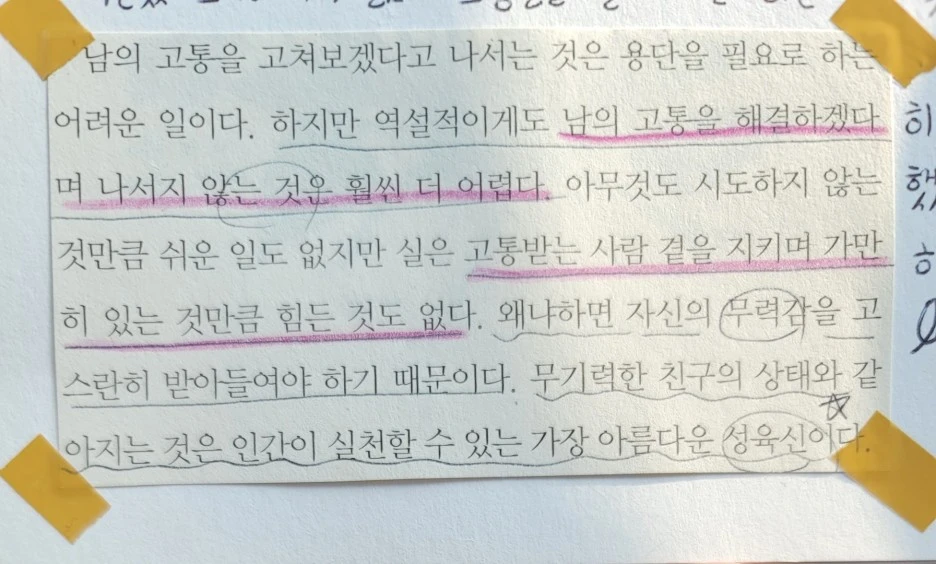 남의 고통을 고쳐보겠다고 나서는 것은 용단을 필요로 하는
어려운 일이다. 하지만 역설적이게도 남의 고통을 해결하겠다
며 나서지 않는 것은 훨씬 더 어렵다. 아무것도 시도하지 않는
것만큼 쉬운 일도 없지만 실은 고통받는 사람 곁을 지키며 가만
히 있는 것만큼 힘든 것도 없다. 왜냐하면 자신의 무력감을 고
스란히 받아들여야 하기 때문이다. 무기력한 친구의 상태와 같
아지는 것은 인간이 실천할 수 있는 가장 아름다운 성육신이다.